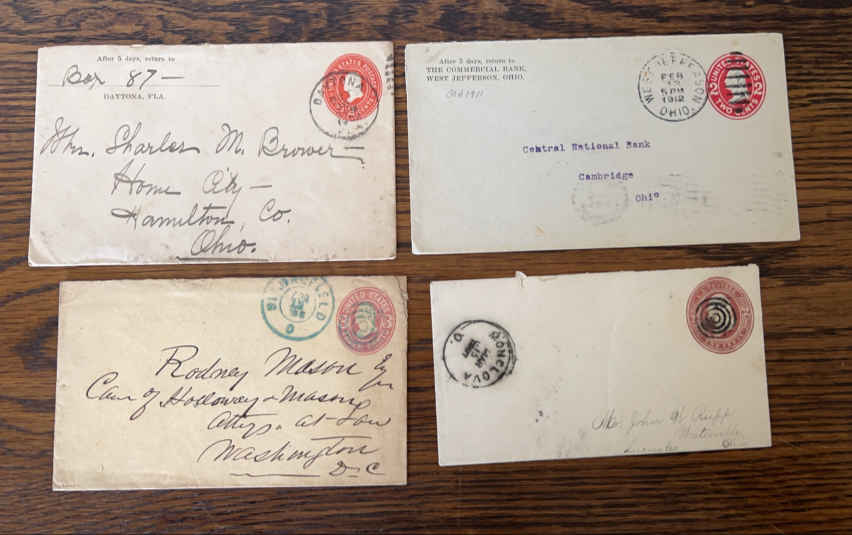 After 5 days, return to
Box 87-
DAYTONA, FLA.
DAYTONA
FLA.
UNITED STATES POSTAGE
Mrs. Charles M. Brower
Home City-
Hamilton, Co.
Ohio.
After 5 days, return to
THE COMMERCIAL BANK,
WEST JEFFERSON, OHIO.
WEST JEFFERSON OHIO
FEB
5 PM
1912
UNITED STATES
2
2
Central National Bank
Cambridge
Ohio
SPRINGFIELD
O
UNITED STATES
2
Rodney Mason Esq
Care of Holloway & Mason
Attys. at Law
Washington
D C
MONCLOVA
O.
2
Mr. John